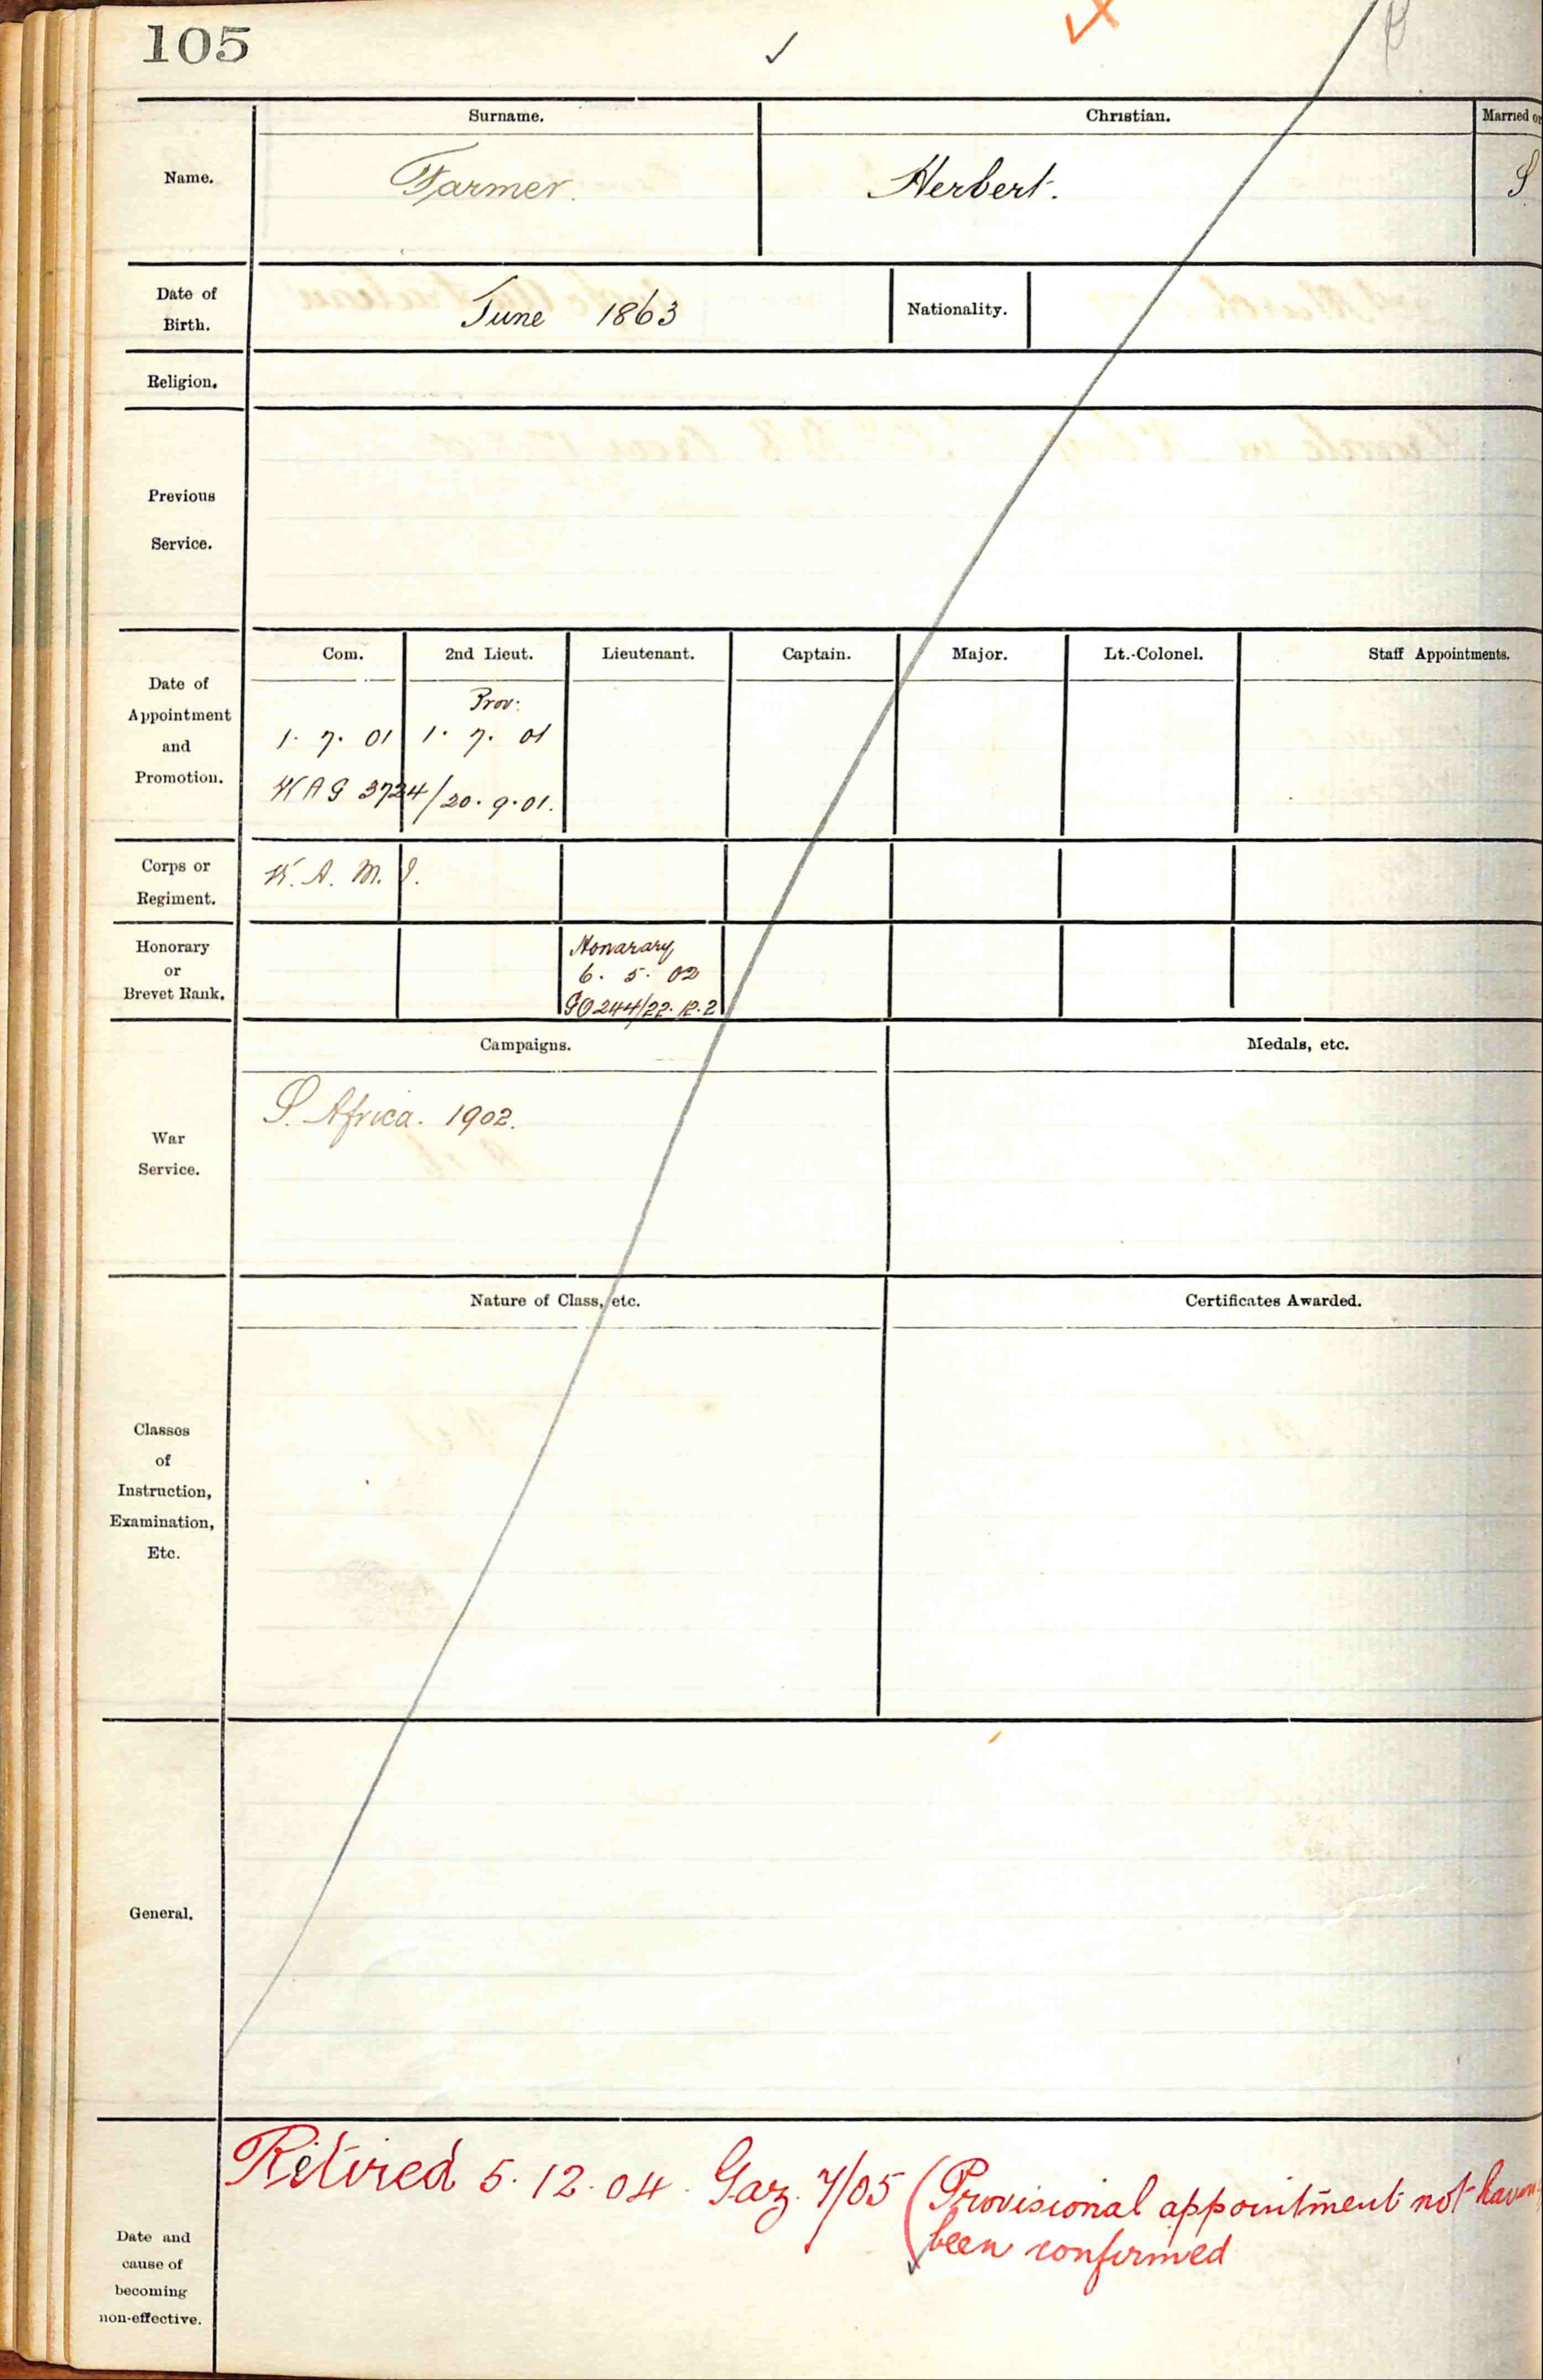 105
Surname. Christian. Married or
Name. Farmer. Herbert. S
Date of
Birth. June 1863 Nationality.
Religion.
Previous
Service.
Com. 2nd Lieut. Lieutenant. Captain. Major. Lt.-Colonel. Staff Appointments.
Date of
Appointment
and
Promotion.
Prov:
1. 7. 01 1. 7. 01
WAG 3724/20.9.01.
Corps or
Regiment. W. A. M. I.
Honorary
or
Brevet Rank.
Honarary
6. 5. 02
GO 244/22.12.2
Campaigns. Medals, etc.
War
Service.
S. Africa. 1902.
Nature of Class, etc. Certificates Awarded.
Classes
of
Instruction,
Examination,
Etc.
General.
Date and
cause of
becoming
non-effective.
Retired 5.12.04. Gaz. 7/05 (Provisional appointment not
been confirmed